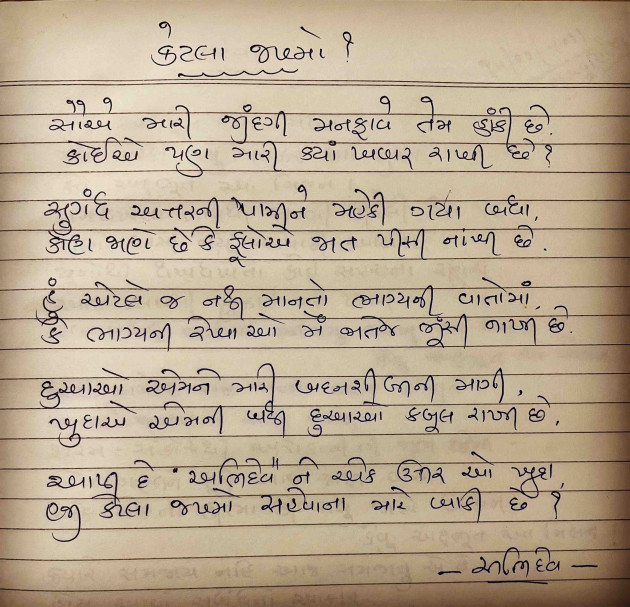 કેટલા જખમો ?
સૌએ મારી જીંદગી મનફાવે તેમ હાંકી છે.
કોઈએ પણ મારી ક્યાં ખબર રાખી છે ?
સુગંધ અત્તરની પામીને મહેકી ગયા બધા,
કોણ જાણે છે કે ફૂલોએ જાત પીસી નાંખી છે.
હું એટલે જ નથી માનતો ભાગ્યની વાતોમાં,
કે ભાગ્યની રેખાઓ મેં જાતેજ ભૂંસી નાખી છે.
દુઆઓ એમને મારી બદનશીબીની માગી,
ખુદાએ એમની બધી દુઆઓ કબૂલ રાખી છે,
આપી દે "અભિદેવ" ને એક ઉત્તર ઓ ખુદા,
હજી કેટલા જખમો સહેવાના મારે બાકી છે ?
— અભિદેવ —